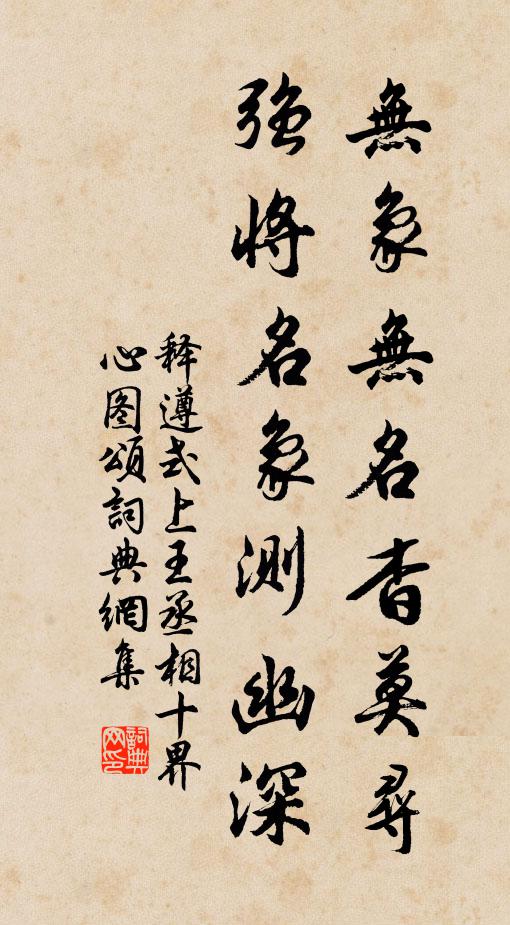 無象無名杳莫尋
強將名象測幽深
释遵式上王丞相十界
心图頌詞典網集
詞典
网印